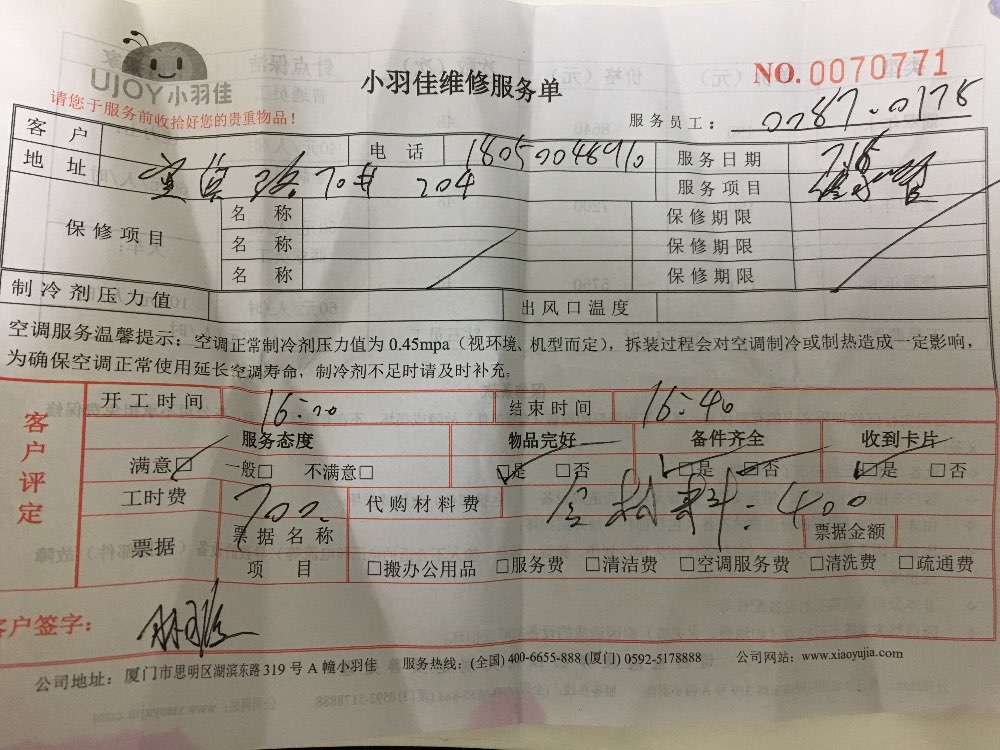 UJOY小羽佳
小羽佳维修服务单
NO.0070771
请您于服务前收拾好您的贵重物品！
服务员工：0287.0178
客 户
电 话
服务日期 7.18
地 址 路 70# 204
服务项目
保修项目
名 称 保修期限
名 称 保修期限
名 称 保修期限
制冷剂压力值 出风口温度
空调服务温馨提示：空调正常制冷剂压力值为 0.45mpa（视环境、机型而定），拆装过程会对空调制冷或制热造成一定影响，
为确保空调正常使用延长空调寿命，制冷剂不足时请及时补充。
客户评定
开工时间 16:20 结束时间 16:40
服务态度 物品完好 备件齐全 收到卡片
满意□ 一般□ 不满意□ □是 □否 □是 □否 □是 □否
工时费 代购材料费 含材料：400
票据 票据名称 票据金额
项 目 □搬办公用品 □服务费 □清洁费 □空调服务费 □清洗费 □疏通费
客户签字：
公司地址：厦门市思明区湖滨东路 319 号 A 幢小羽佳 服务热线：(全国) 400-6655-888 (厦门) 0592-5178888 公司网站：www.xiaoyujia.com